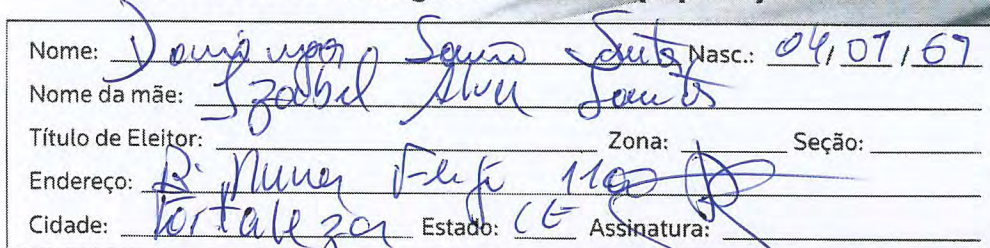 Nome: Domingos Souza Santos Nasc.: 04/07/67
Nome da mãe: Izabel Alves Santos
Título de Eleitor: Zona: Seção:
Endereço: R. Nunes Feijó 1100
Cidade: Fortaleza Estado: CE Assinatura: